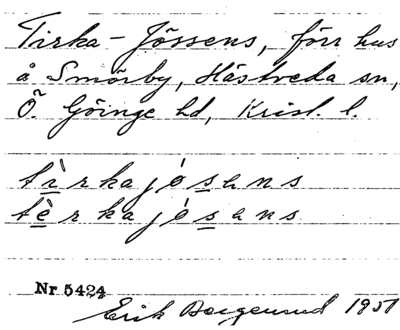 Tirka-Jössens, förr hus
å Smörby, Hästveda sn,
Ö. Göinge hd, Krist. l.
tìrkajósans
tèrkajósans
Nr 5424
Erik 1951